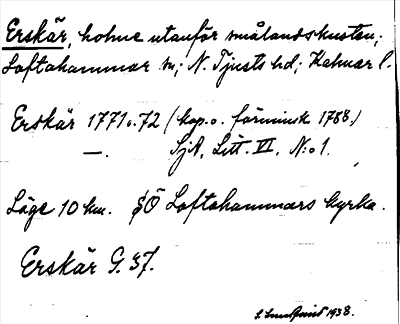 Erskär, holme utanför smålandskusten;
Loftahammar sn; N. Tjusts hd; Kalmar l.
Erskär 1771 o. 72 (kop. o. förminsk 1788.)
—. SjA, Litt. VI, N:o 1.
Läge 10 km. SÖ Loftahammars kyrka.
Erskär G. 37.
S. Lundqvist 1938.